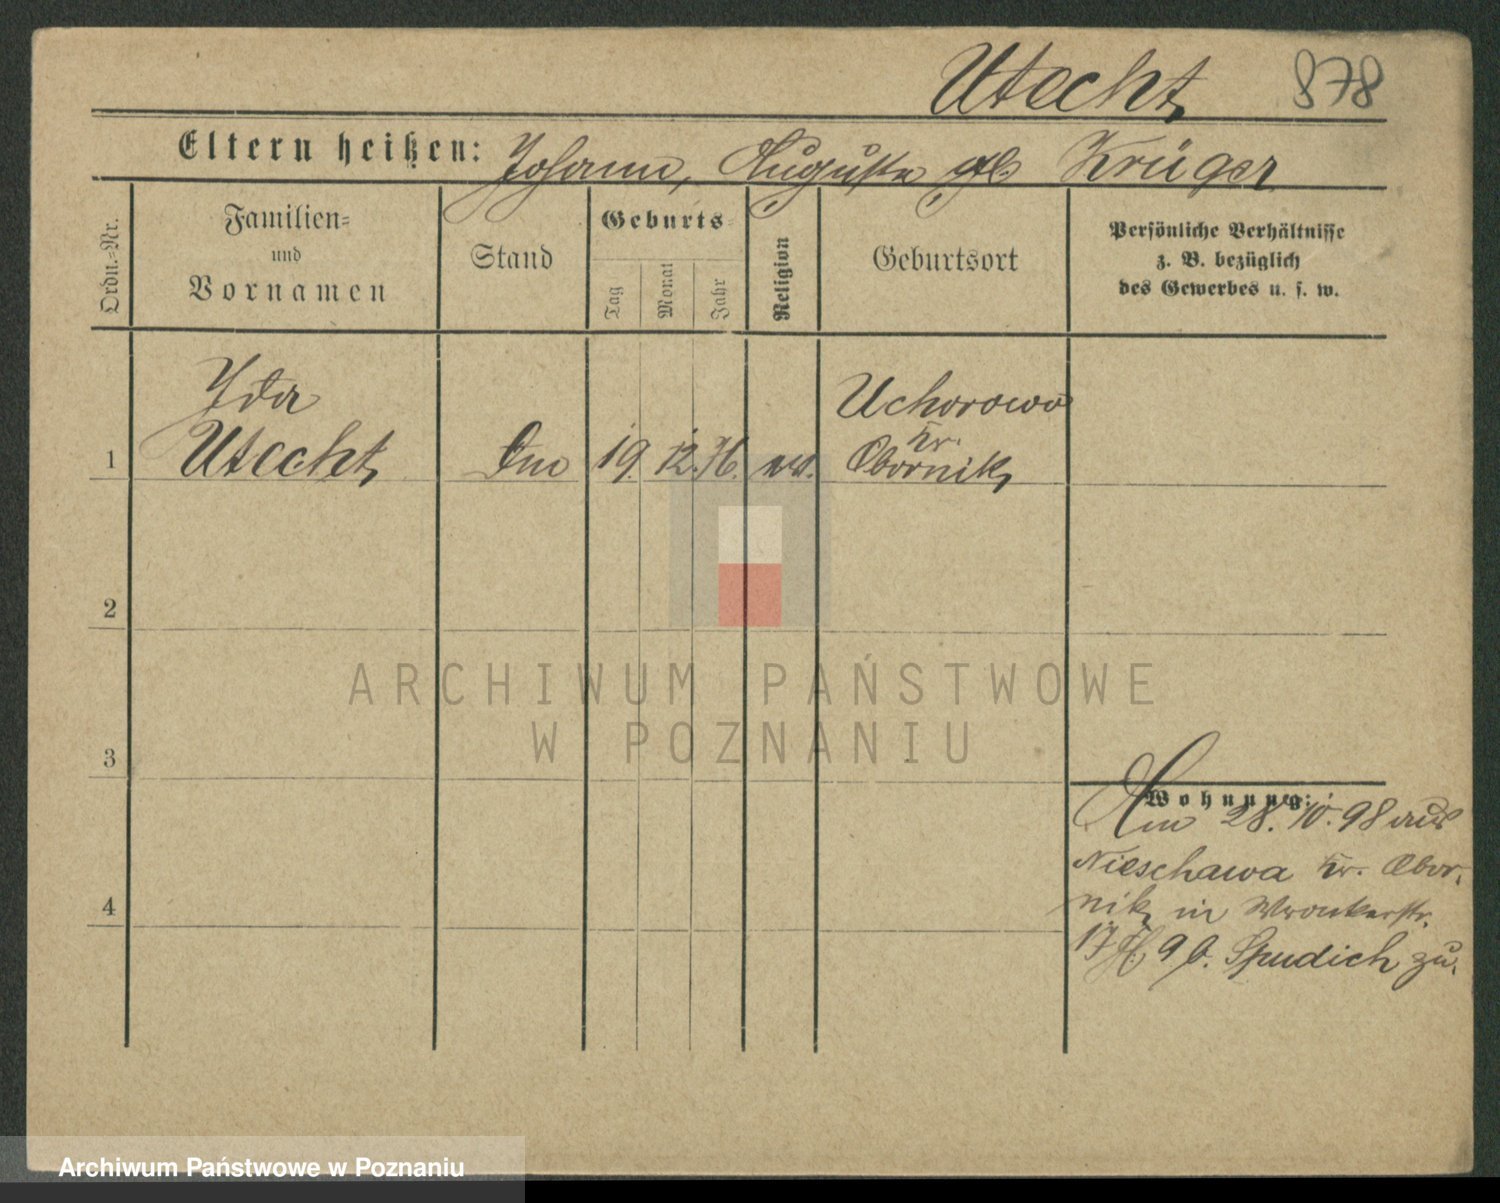 Utecht 878
Eltern heißen: Johann, Auguste gb. Krüger
Ordn.-Nr.
Familien-
und
Vornamen
Stand
Geburts-
Tag
Monat
Jahr
Religion
Geburtsort
Persönliche Verhältnisse
z. B. bezüglich
des Gewerbes u. s. w.
Ida
Utecht
1
19. 12. 76.
Uchorowo
Kr.
Obornik
2
3
4
Wohnung:
Am 28. 10. 98 aus
Nieschawa Kr. Obor-
nik in Wronkerstr.
17 H. 9 b. Spudich zu.
ARCHIWUM PAŃSTWOWE
W POZNANIU
Archiwum Państwowe w Poznaniu